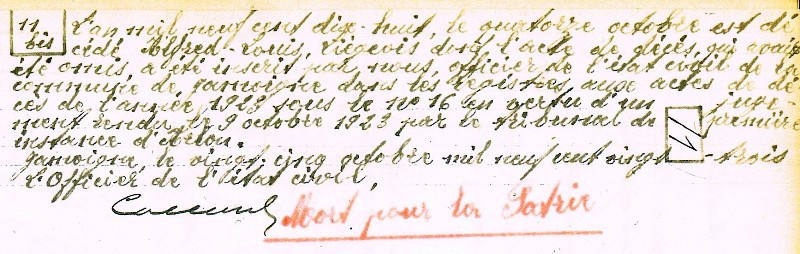 11 bis
L'an mil neuf cent dix-huit, le quatorze octobre est dé
cédé Alfred-Louis, Liégeois dont l'acte de décès, qui avait
été omis, a été inscrit par nous, officier de l'état civil de la
commune de Jamoigne dans les registres aux actes de dé
cès de l'année 1923 sous le no 16 en vertu d'un juge-
ment rendu le 9 octobre 1923 par le tribunal de première
instance d'Arlon.
Jamoigne, le vingt-cinq octobre mil neuf cent vingt-trois
L'Officier de l'état civil,
Mort pour la Patrie